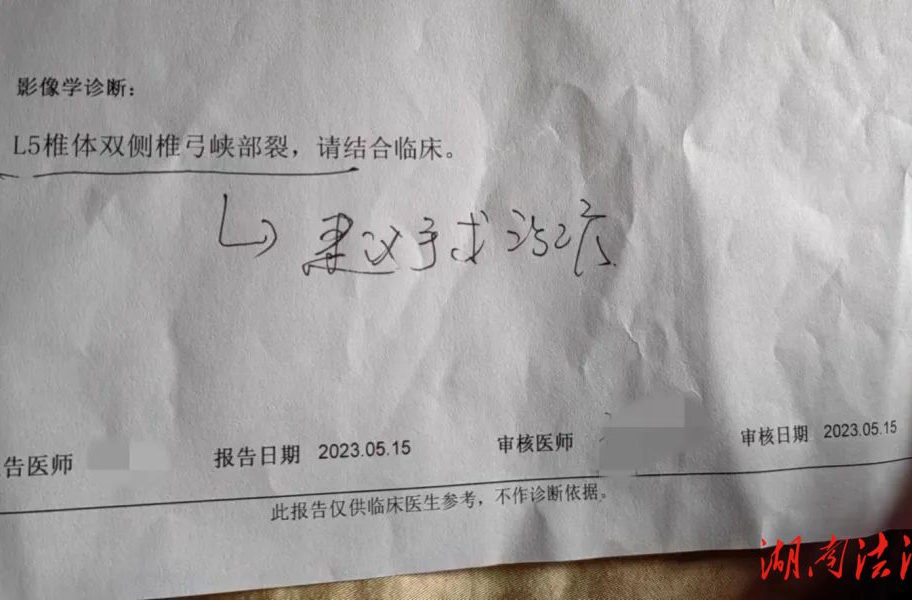 影像学诊断：
L5椎体双侧椎弓峡部裂，请结合临床。
建议手术治疗
告医师
报告日期 2023.05.15
审核医师
审核日期 2023.05.15
此报告仅供临床医生参考，不作诊断依据。
湖南法治